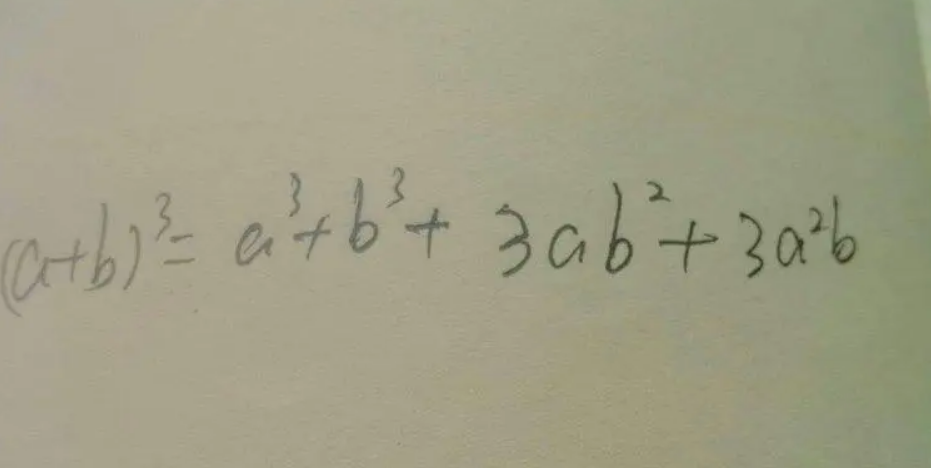 (a+b)³= a³+b³+ 3ab²+3a²b